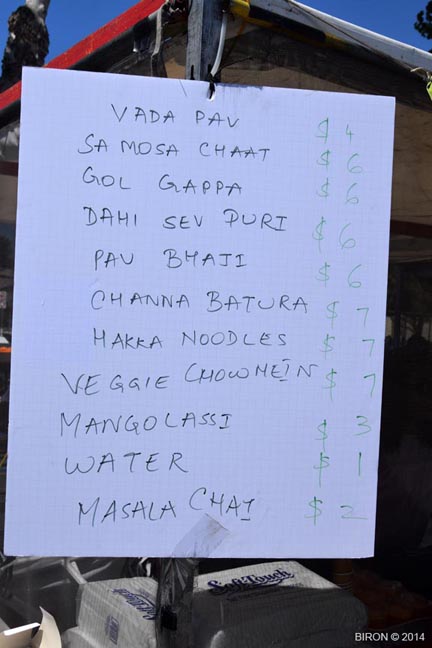 VADA PAV $ 4
SAMOSA CHAAT $ 6
GOL GAPPA $ 6
DAHI SEV PURI $ 6
PAV BHAJI $ 6
CHANNA BATURA $ 7
HAKKA NOODLES $ 7
VEGGIE CHOWMEIN $ 7
MANGOLASSI $ 3
WATER $ 1
MASALA CHAI $ 2
SofTouch
BIRON © 2014